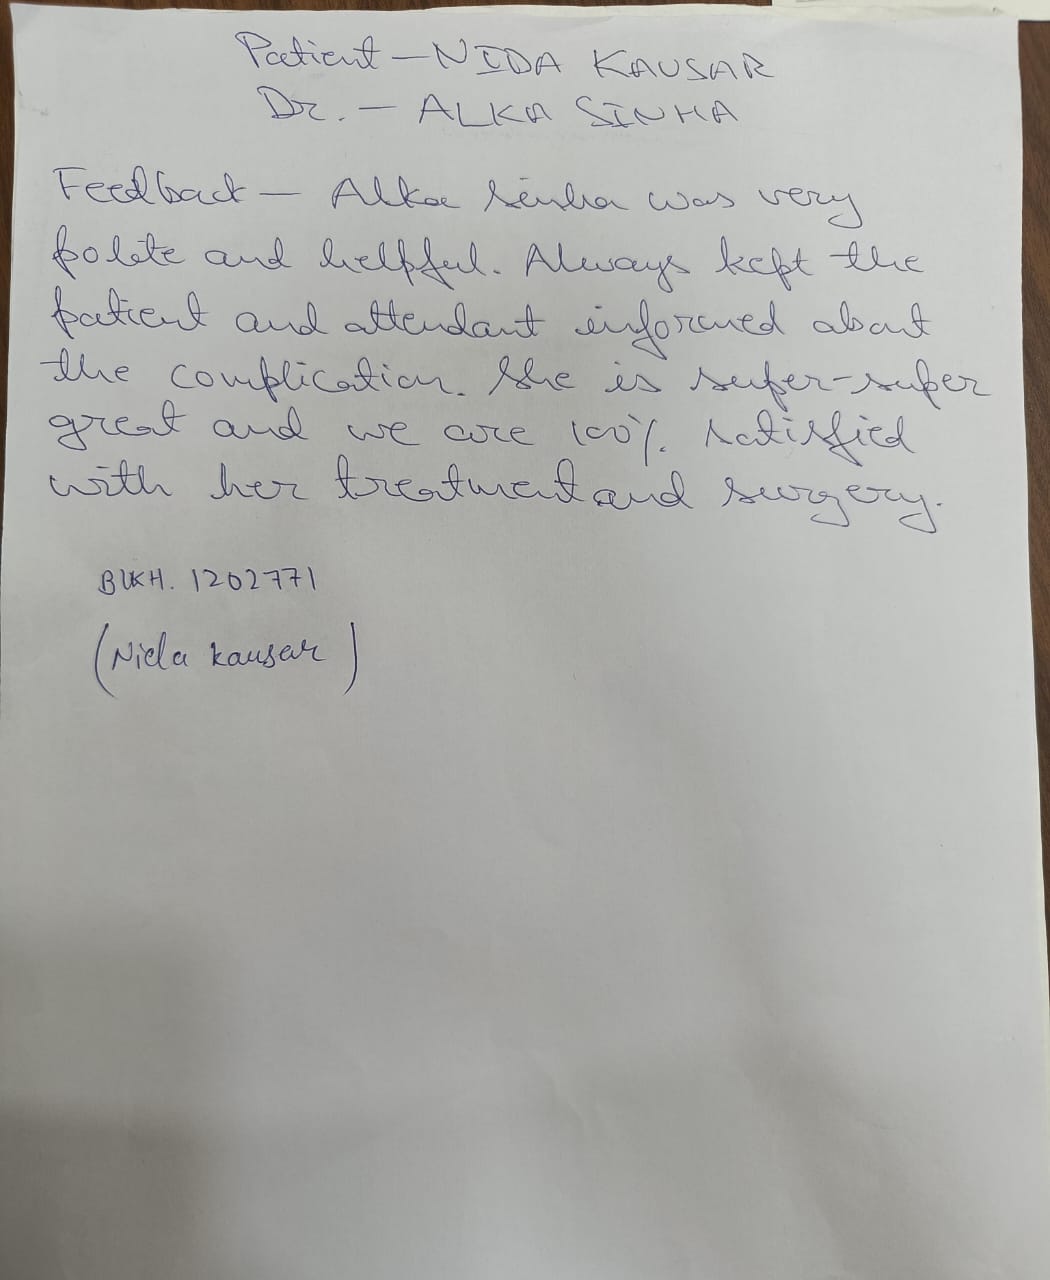 Patient - NIDA KAUSAR
Dr. - ALKA SINHA
Feedback - Alka Sinha was very
polite and helpful. Always kept the
patient and attendant informed about
the complication. She is super-super
great and we are 100% satisfied
with her treatment and surgery.
BUKH. 1202771
(Nida kausar)